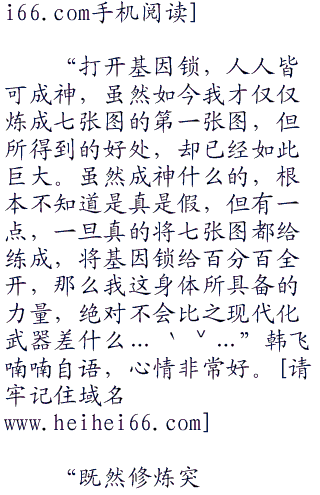 i66.com手机阅读]
“打开基因锁，人人皆
可成神，虽然如今我才仅仅
炼成七张图的第一张图，但
所得到的好处，却已经如此
巨大。虽然成神什么的，根
本不知道是真是假，但有一
点，一旦真的将七张图都给
练成，将基因锁给百分百全
开，那么我这身体所具备的
力量，绝对不会比之现代化
武器差什么…｀ˇ…”韩飞
喃喃自语，心情非常好。[请
牢记住域名
www.heihei66.com]
“既然修炼突